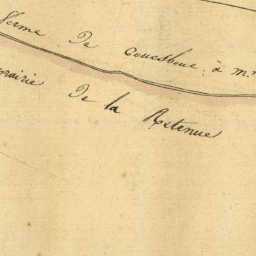 ferme De Couesbouc à Mr
prairie De la Retenue